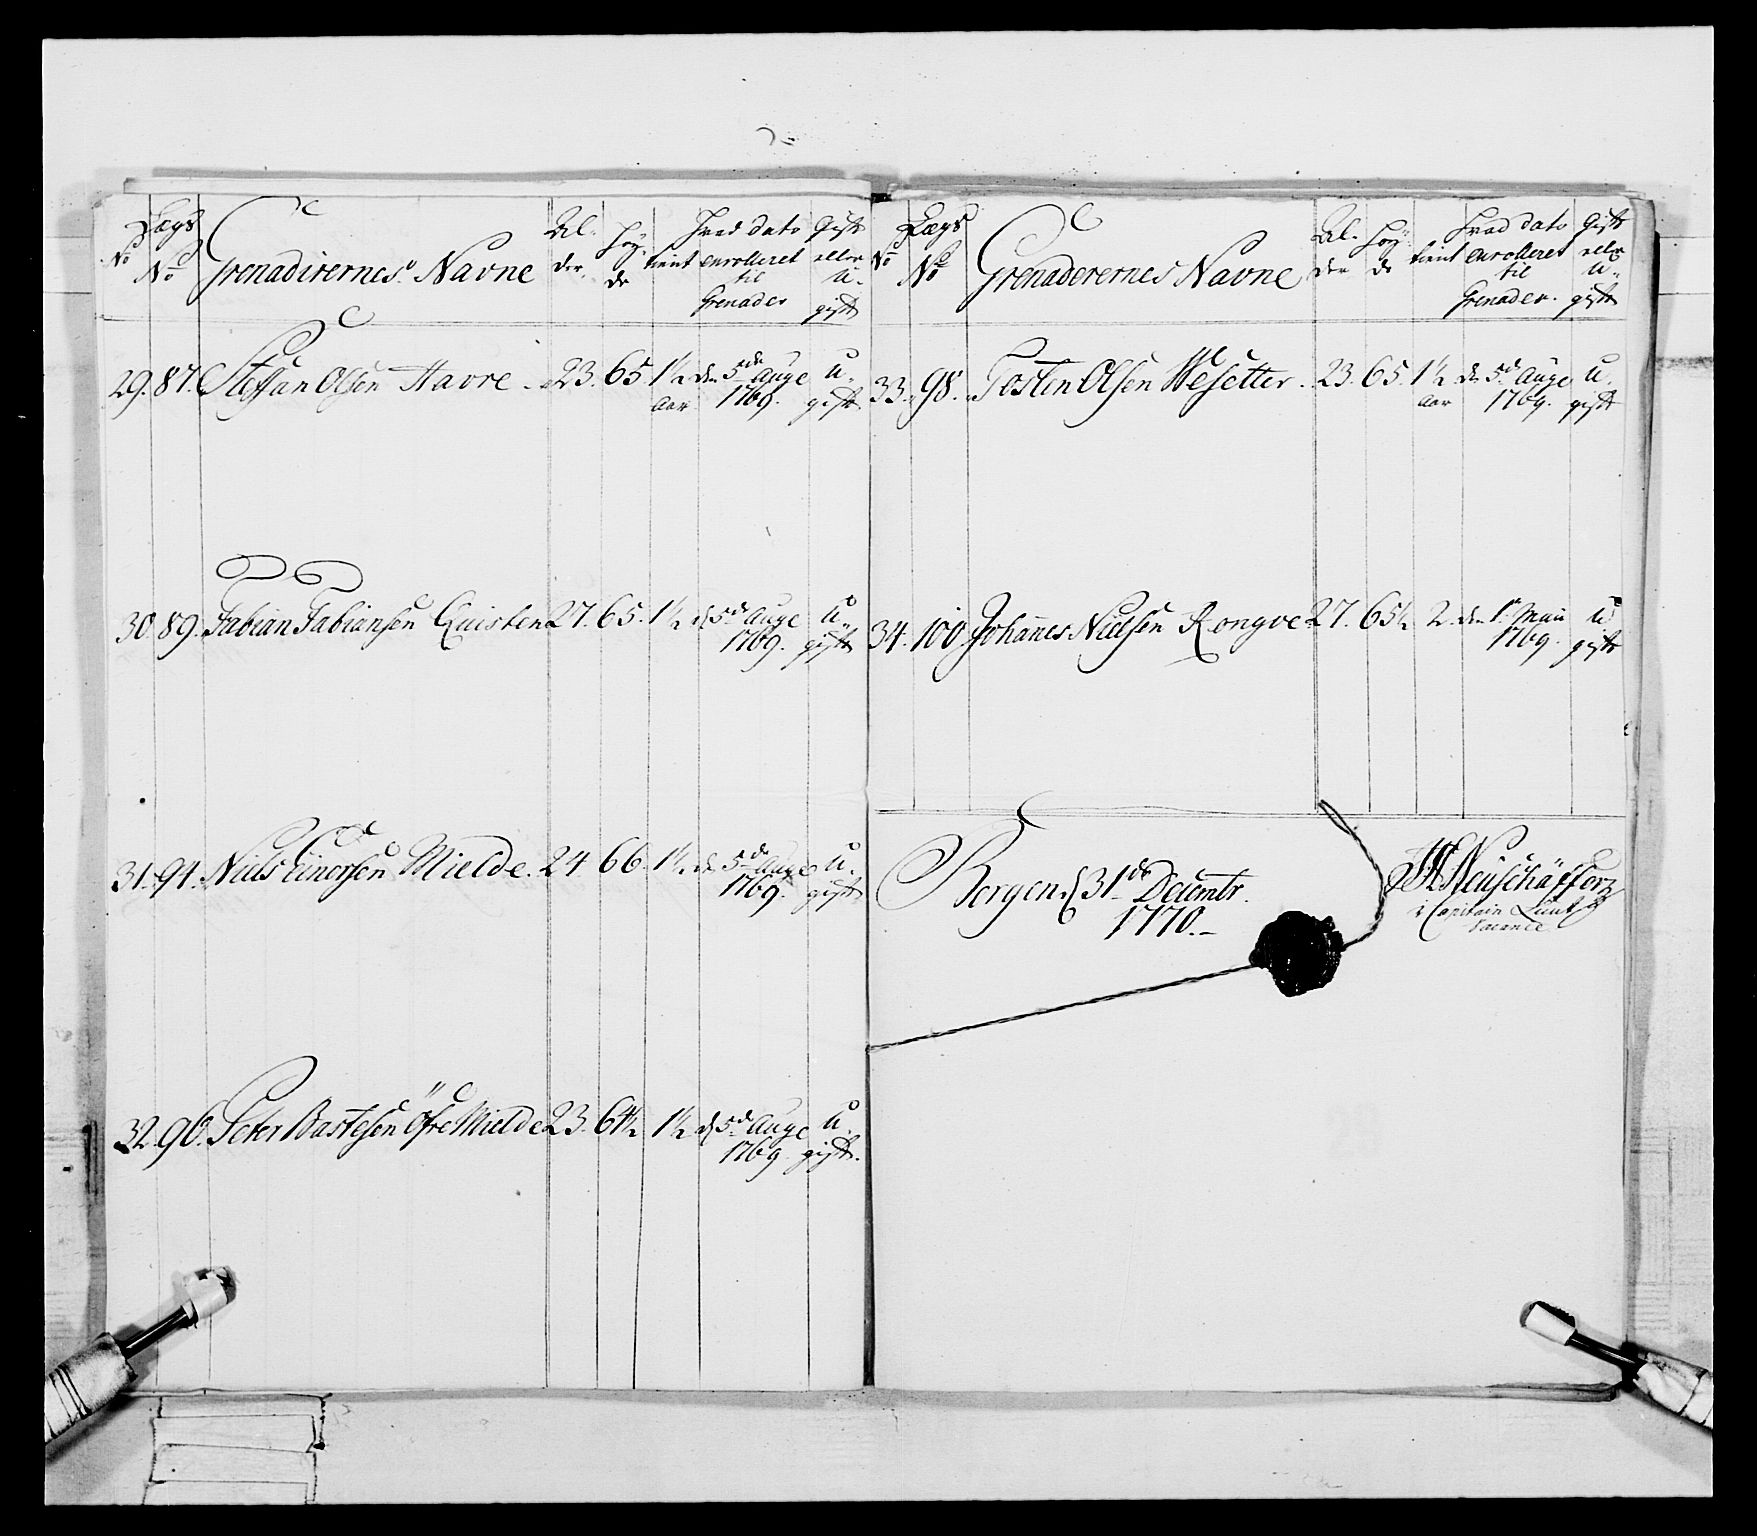 No Lægs No Grenadirernes Navne Al- der. Høy- de tient Hvad dato enrolleret til Grenader Gift eller u- gift
29. 87. Steffan Olsen Havre. 23. 65 1½ Aar den 5de Auge 1769. u. gift
30. 89. Fabian Fabiansen Quisten 27. 65. 1½ d 5de Auge 1769. u- gift
31. 91. Niels Einersen Mielde. 24 66. 1½ d 5de Auge 1769. u. gift
32. 96. Peter Bastesen Öfre Mielde 23. 64½ 1½ d 5de Auge 1769. u. gift.
No Lægs No Grenaderernes Navne Al- der Høy- de tient Hvad dato enrolleret til Grenader. Gift eller u- gift
33. 98. Tosten Olsen Wesetter. 23. 65. 1½ Aar d 5de Auge 1769. u. gift
34. 100. Johannes Nielsen Rongve 27. 65½ 2. den 1te Maii 1769. u gift
Bergen d 31de Decembr.
1770.-
Neuschäffer
i Capitain Lieut
Vacance